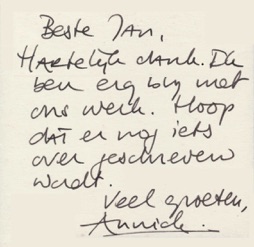 Beste Jan,
Hartelijk dank. Ik
ben erg blij met
ons werk. Hoop
dat er nog iets
over geschreven
wordt.
Veel groeten,
Annick.